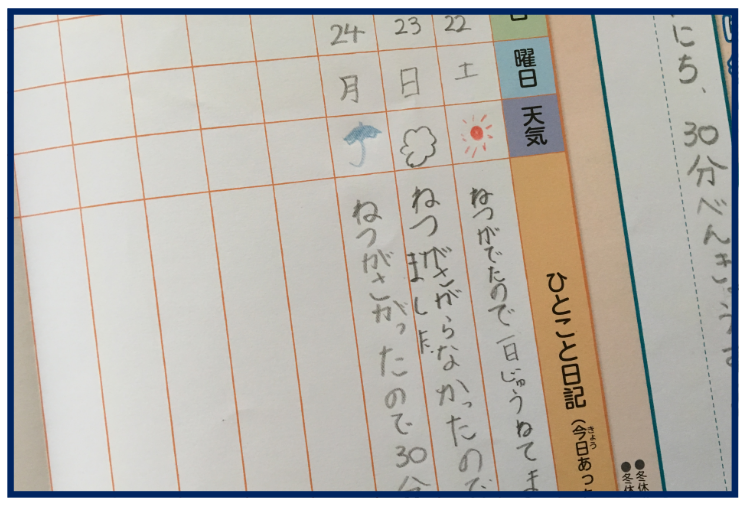 にち、30分べんきょうす
●冬休
●冬休
曜日
天気
ひとこと日記
（今日あっ
きょう
22
土
ねつがでたので一日じゅうねてま
23
日
ねつがさがらなかったので
ました
24
月
ねつがさがったので30分